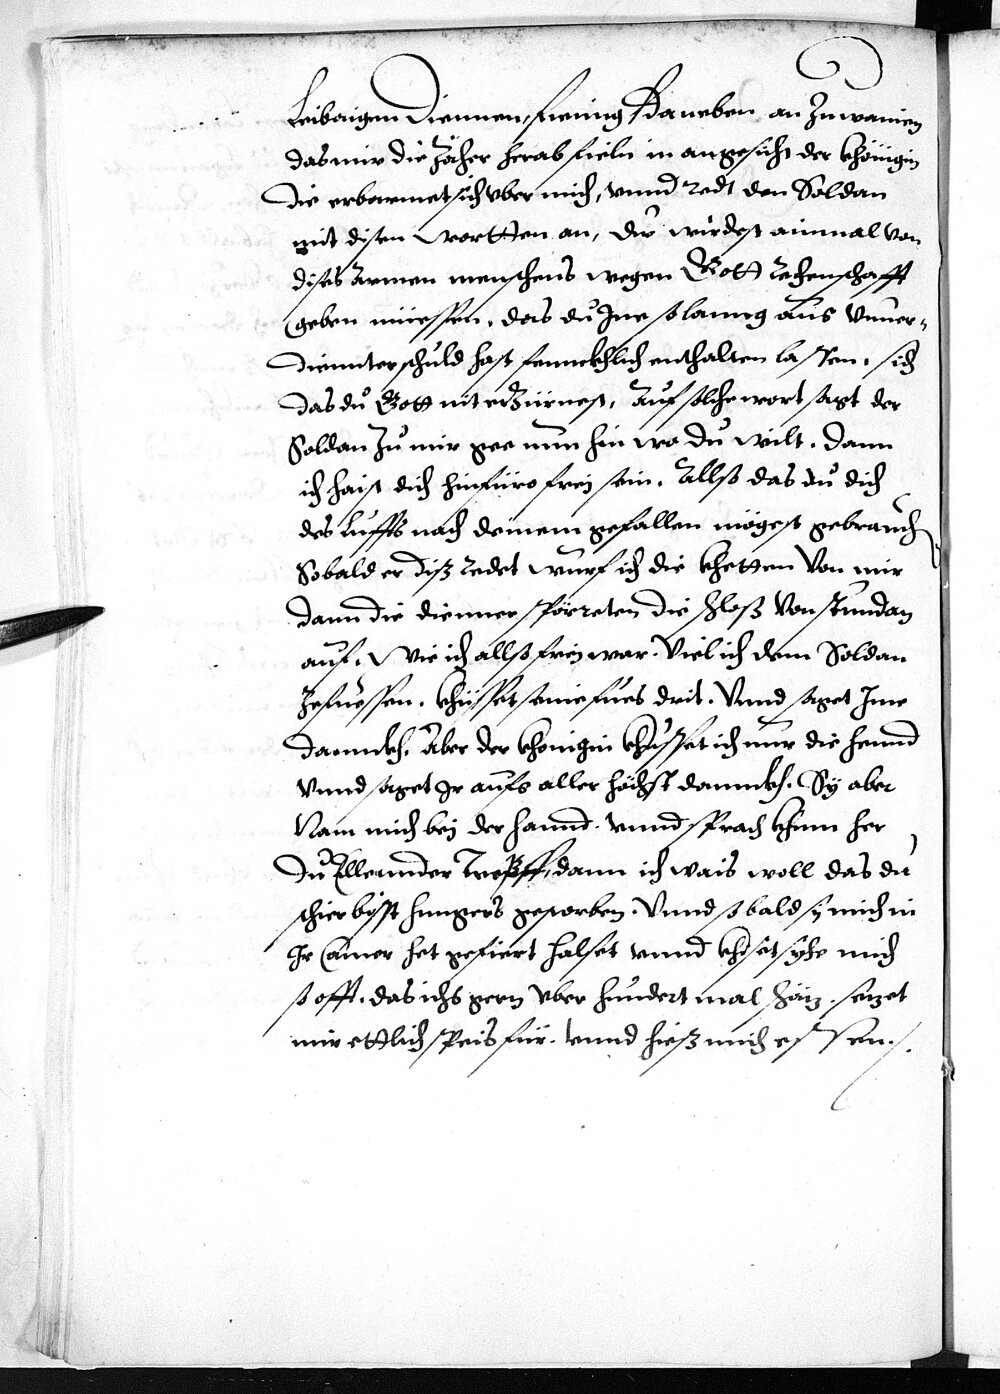 Leibaigen Diennen, fieng Daneben an Zuwainen
das mir die Zäher herab fieln in angesicht der khönigin
Die erbarmet sich vber mich, vnnd redt den Soldan
mit disen wortten an, du wirdest ainmal von
dises armen menschens wegen Gott rechenschafft
geben müessen, das du Ine so lanng aus vnuer-
diennter schuld hast fennckhlich enthalten lassen, sich
das du Gott nit erzürnest, Auf solche wort sagt der
Soldan Zu mir gee nun hin wo du wilt. Dann
ich haist dich hinfüro frej sein. Allso das du dich
des Luffts nach deinem gefallen mögest gebrauch
Sobald er diß redet wurf ich die khetten von mir
dann die dienner spörreten die schloß von stundan
auf. Wie ich allso frej war. Viel ich dem Soldan
Ze fuessen. khüsset seine fües drit. Vnnd saget Ime
dannckh. Aber der khonigin khusset ich nur die hennd
Vnnd saget Ir aufs aller höchst dannckh. Sy aber
Nam mich bej der hannd. vnnd sprach khum her
Du Ellennder tropff, dann ich wais woll das du
schier bist hungers gestorben. Vnnd so bald sy mich in
Ir Camer het gefiert halset vnnd khiset sy mich
so offt. das ichs gern vber hundert mal schäz. sezet
mir ettlich speis für. vnnd hieß mich essen.